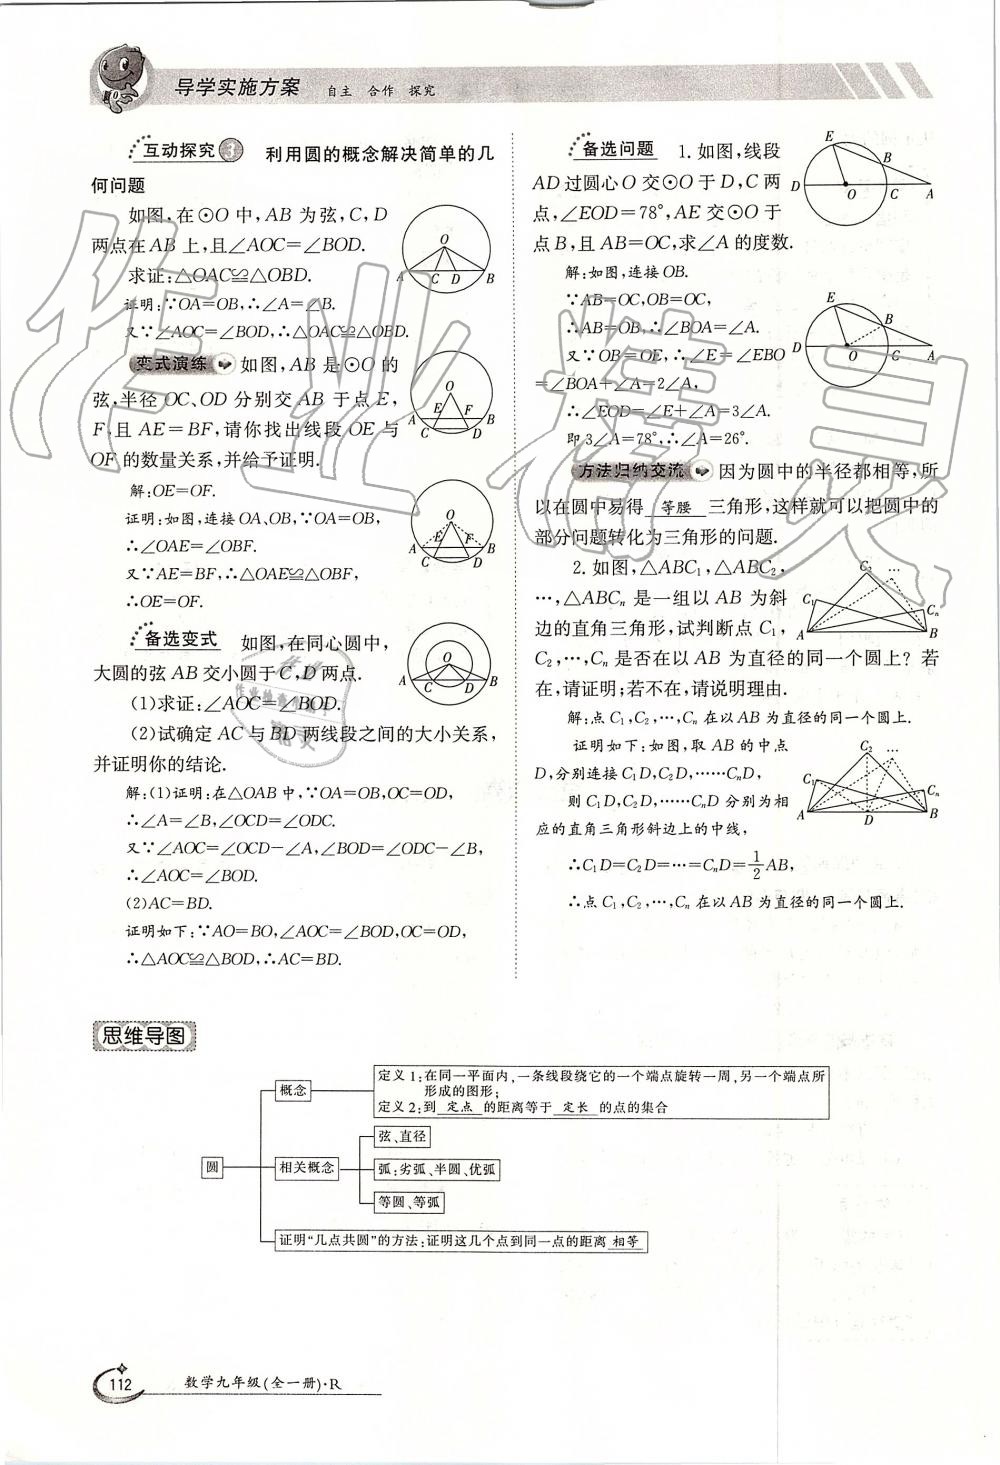 导学实施方案 自主 合作 探究
互动探究3 利用圆的概念解决简单的几
何问题
如图,在⊙O 中,AB 为弦,C,D
两点在 AB 上,且∠AOC=∠BOD.
求证:△OAC≌△OBD.
证明:∵OA=OB,∴∠A=∠B.
又∵∠AOC=∠BOD,∴△OAC≌△OBD.
变式演练 如图,AB 是⊙O 的
弦,半径 OC、OD 分别交 AB 于点 E,
F,且 AE=BF,请你找出线段 OE 与
OF 的数量关系,并给予证明.
解:OE=OF.
证明:如图,连接 OA、OB,∵OA=OB,
∴∠OAE=∠OBF.
又∵AE=BF,∴△OAE≌△OBF,
∴OE=OF.
备选变式 如图,在同心圆中,
大圆的弦 AB 交小圆于 C,D 两点.
(1)求证:∠AOC=∠BOD.
(2)试确定 AC 与 BD 两线段之间的大小关系,
并证明你的结论.
解:(1)证明:在△OAB 中,∵OA=OB,OC=OD,
∴∠A=∠B,∠OCD=∠ODC.
又∵∠AOC=∠OCD-∠A,∠BOD=∠ODC-∠B,
∴∠AOC=∠BOD.
(2)AC=BD.
证明如下:∵AO=BO,∠AOC=∠BOD,OC=OD,
∴△AOC≌△BOD,∴AC=BD.
O
A C D B
O
E F
A B
C D
O
E F
A B
C D
O
A C D B
备选问题 1.如图,线段
AD 过圆心 O 交⊙O 于 D,C 两
点,∠EOD=78°,AE 交⊙O 于
点 B,且 AB=OC,求∠A 的度数.
解:如图,连接 OB.
∵AB=OC,OB=OC,
∴AB=OB,∴∠BOA=∠A.
又∵OB=OE,∴∠E=∠EBO
=∠BOA+∠A=2∠A,
∴∠EOD=∠E+∠A=3∠A.
即 3∠A=78°,∴∠A=26°.
方法归纳交流 因为圆中的半径都相等,所
以在圆中易得 等腰 三角形,这样就可以把圆中的
部分问题转化为三角形的问题.
2.如图,△ABC₁,△ABC₂,
…,△ABCₙ 是一组以 AB 为斜
边的直角三角形,试判断点 C₁,
C₂,…,Cₙ 是否在以 AB 为直径的同一个圆上?若
在,请证明;若不在,请说明理由.
解:点 C₁,C₂,…,Cₙ 在以 AB 为直径的同一个圆上.
证明如下:如图,取 AB 的中点
D,分别连接 C₁D,C₂D,……CₙD,
则 C₁D,C₂D,……CₙD 分别为相
应的直角三角形斜边上的中线,
∴C₁D=C₂D=…=CₙD=1/2AB,
∴点 C₁,C₂,…,Cₙ 在以 AB 为直径的同一个圆上.
E
B
D O C A
E
B
D O C A
C₂ …
C₁ Cₙ
A B
C₂ …
C₁ Cₙ
A D B
思维导图
圆
概念
定义 1:在同一平面内,一条线段绕它的一个端点旋转一周,另一个端点所
形成的图形;
定义 2:到 定点 的距离等于 定长 的点的集合
相关概念
弦、直径
弧:劣弧、半圆、优弧
等圆、等弧
证明“几点共圆”的方法:证明这几个点到同一点的距离 相等
112 数学九年级(全一册)·R
作业精灵